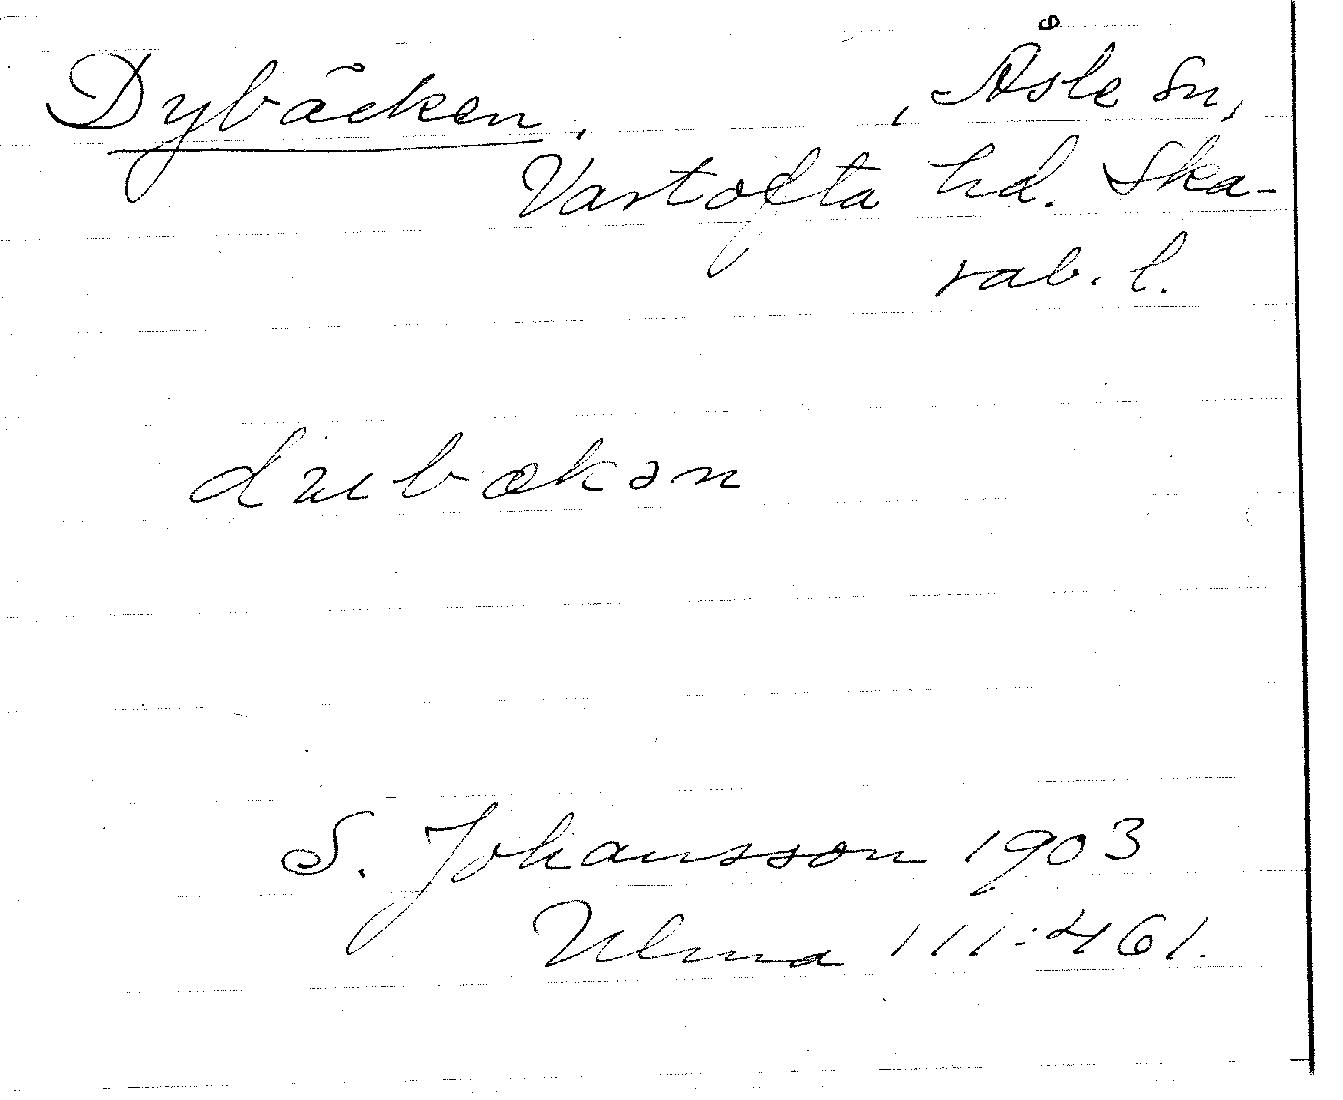 Dybäcken. , Åsle sn,
Vartofta hd. Ska-
rab. l.
dubækən
S. Johansson 1903
Ulma 111:461.